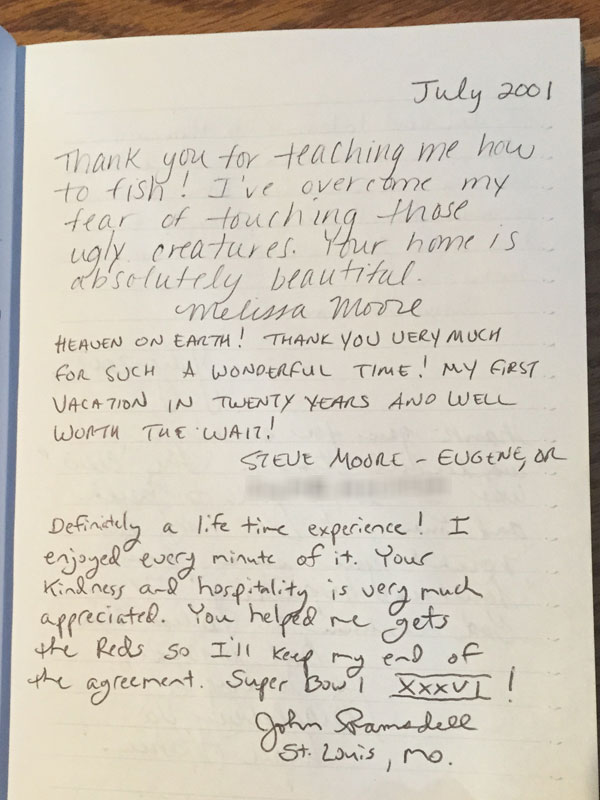 July 2001
Thank you for teaching me how
to fish! I've overcome my
fear of touching those
ugly creatures. Your home is
absolutely beautiful.
Melissa Moore
HEAVEN ON EARTH! THANK YOU VERY MUCH
FOR SUCH A WONDERFUL TIME! MY FIRST
VACATION IN TWENTY YEARS AND WELL
WORTH THE WAIT!
STEVE MOORE - EUGENE, OR
Definitely a life time experience! I
enjoyed every minute of it. Your
Kindness and hospitality is very much
appreciated. You helped me gets
the Reds so I'll keep my end of
the agreement. Super Bowl XXXVI!
John Ramsdell
St. Louis, Mo.